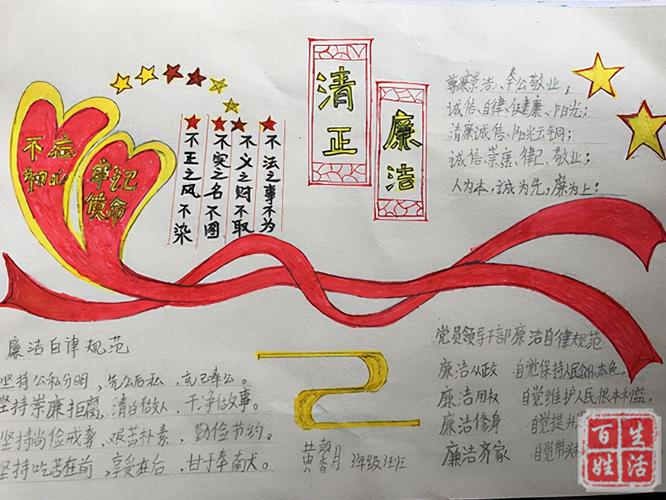 不忘
初心
牢记
使命
不法之事不为
不义之财不取
不实之名不图
不正之风不染
清正
廉洁
尊廉崇洁、奉公敬业；
诚信、自律、健康、阳光；
清廉诚信、阳光
诚信崇廉、律己、敬业；
人为本，诚为先，廉为上；
廉洁自律规范
坚持公私分明，先公后私，克己奉公。
坚持崇廉拒腐，清白做人，干净做事。
坚持尚俭戒奢，艰苦朴素，勤俭节约。
坚持吃苦在前，享受在后，甘于奉献。
黄 月 年级 班
党员领导干部廉洁自律规范
廉洁从政 自觉保持人民公仆本色。
廉洁用权 自觉维护人民根本利益。
廉洁修身 自觉提升
廉洁齐家 自觉带头
百姓生活